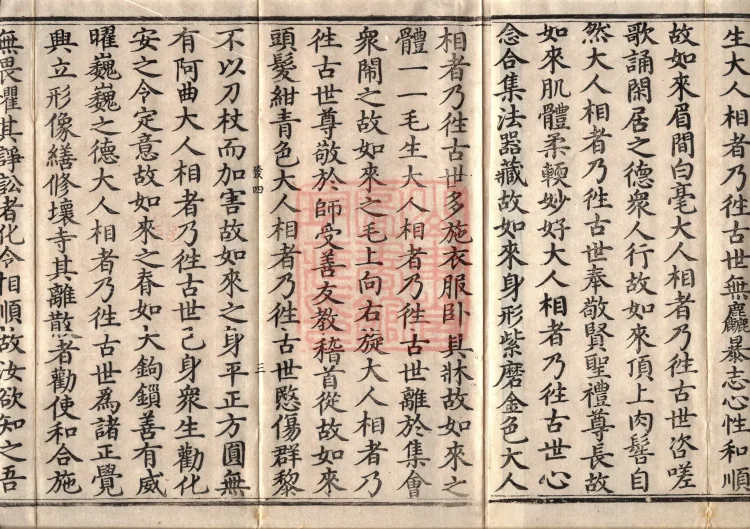 生大人相者乃徃古世無麤暴志心性和順
故如來眉間白毫大人相者乃徃古世咨嗟
歌誦閑居之德衆人行故如來頂上肉髻自
然大人相者乃徃古世奉敬賢聖禮尊長故
如來肌體柔輭妙好大人相者乃徃古世心
念合集法器藏故如來身形紫磨金色大人
相者乃徃古世多施衣服卧具牀故如來之
體一一毛生大人相者乃徃古世離於集會
衆閙之故如來之毛上向右旋大人相者乃
徃古世尊敬於師受善友教稽首從故如來
頭髮紺青色大人相者乃徃古世愍傷群黎
三
不以刀杖而加害故如來之身平正方圓無
有阿曲大人相者乃徃古世己身衆生勸化
安之令定意故如來之脊如大鉤鎖善有威
曜巍巍之德大人相者乃徃古世為諸正覺
興立形像繕修壞寺其離散者勸使和合施
無畏懼其諍訟者化令相順故汝欲知之吾